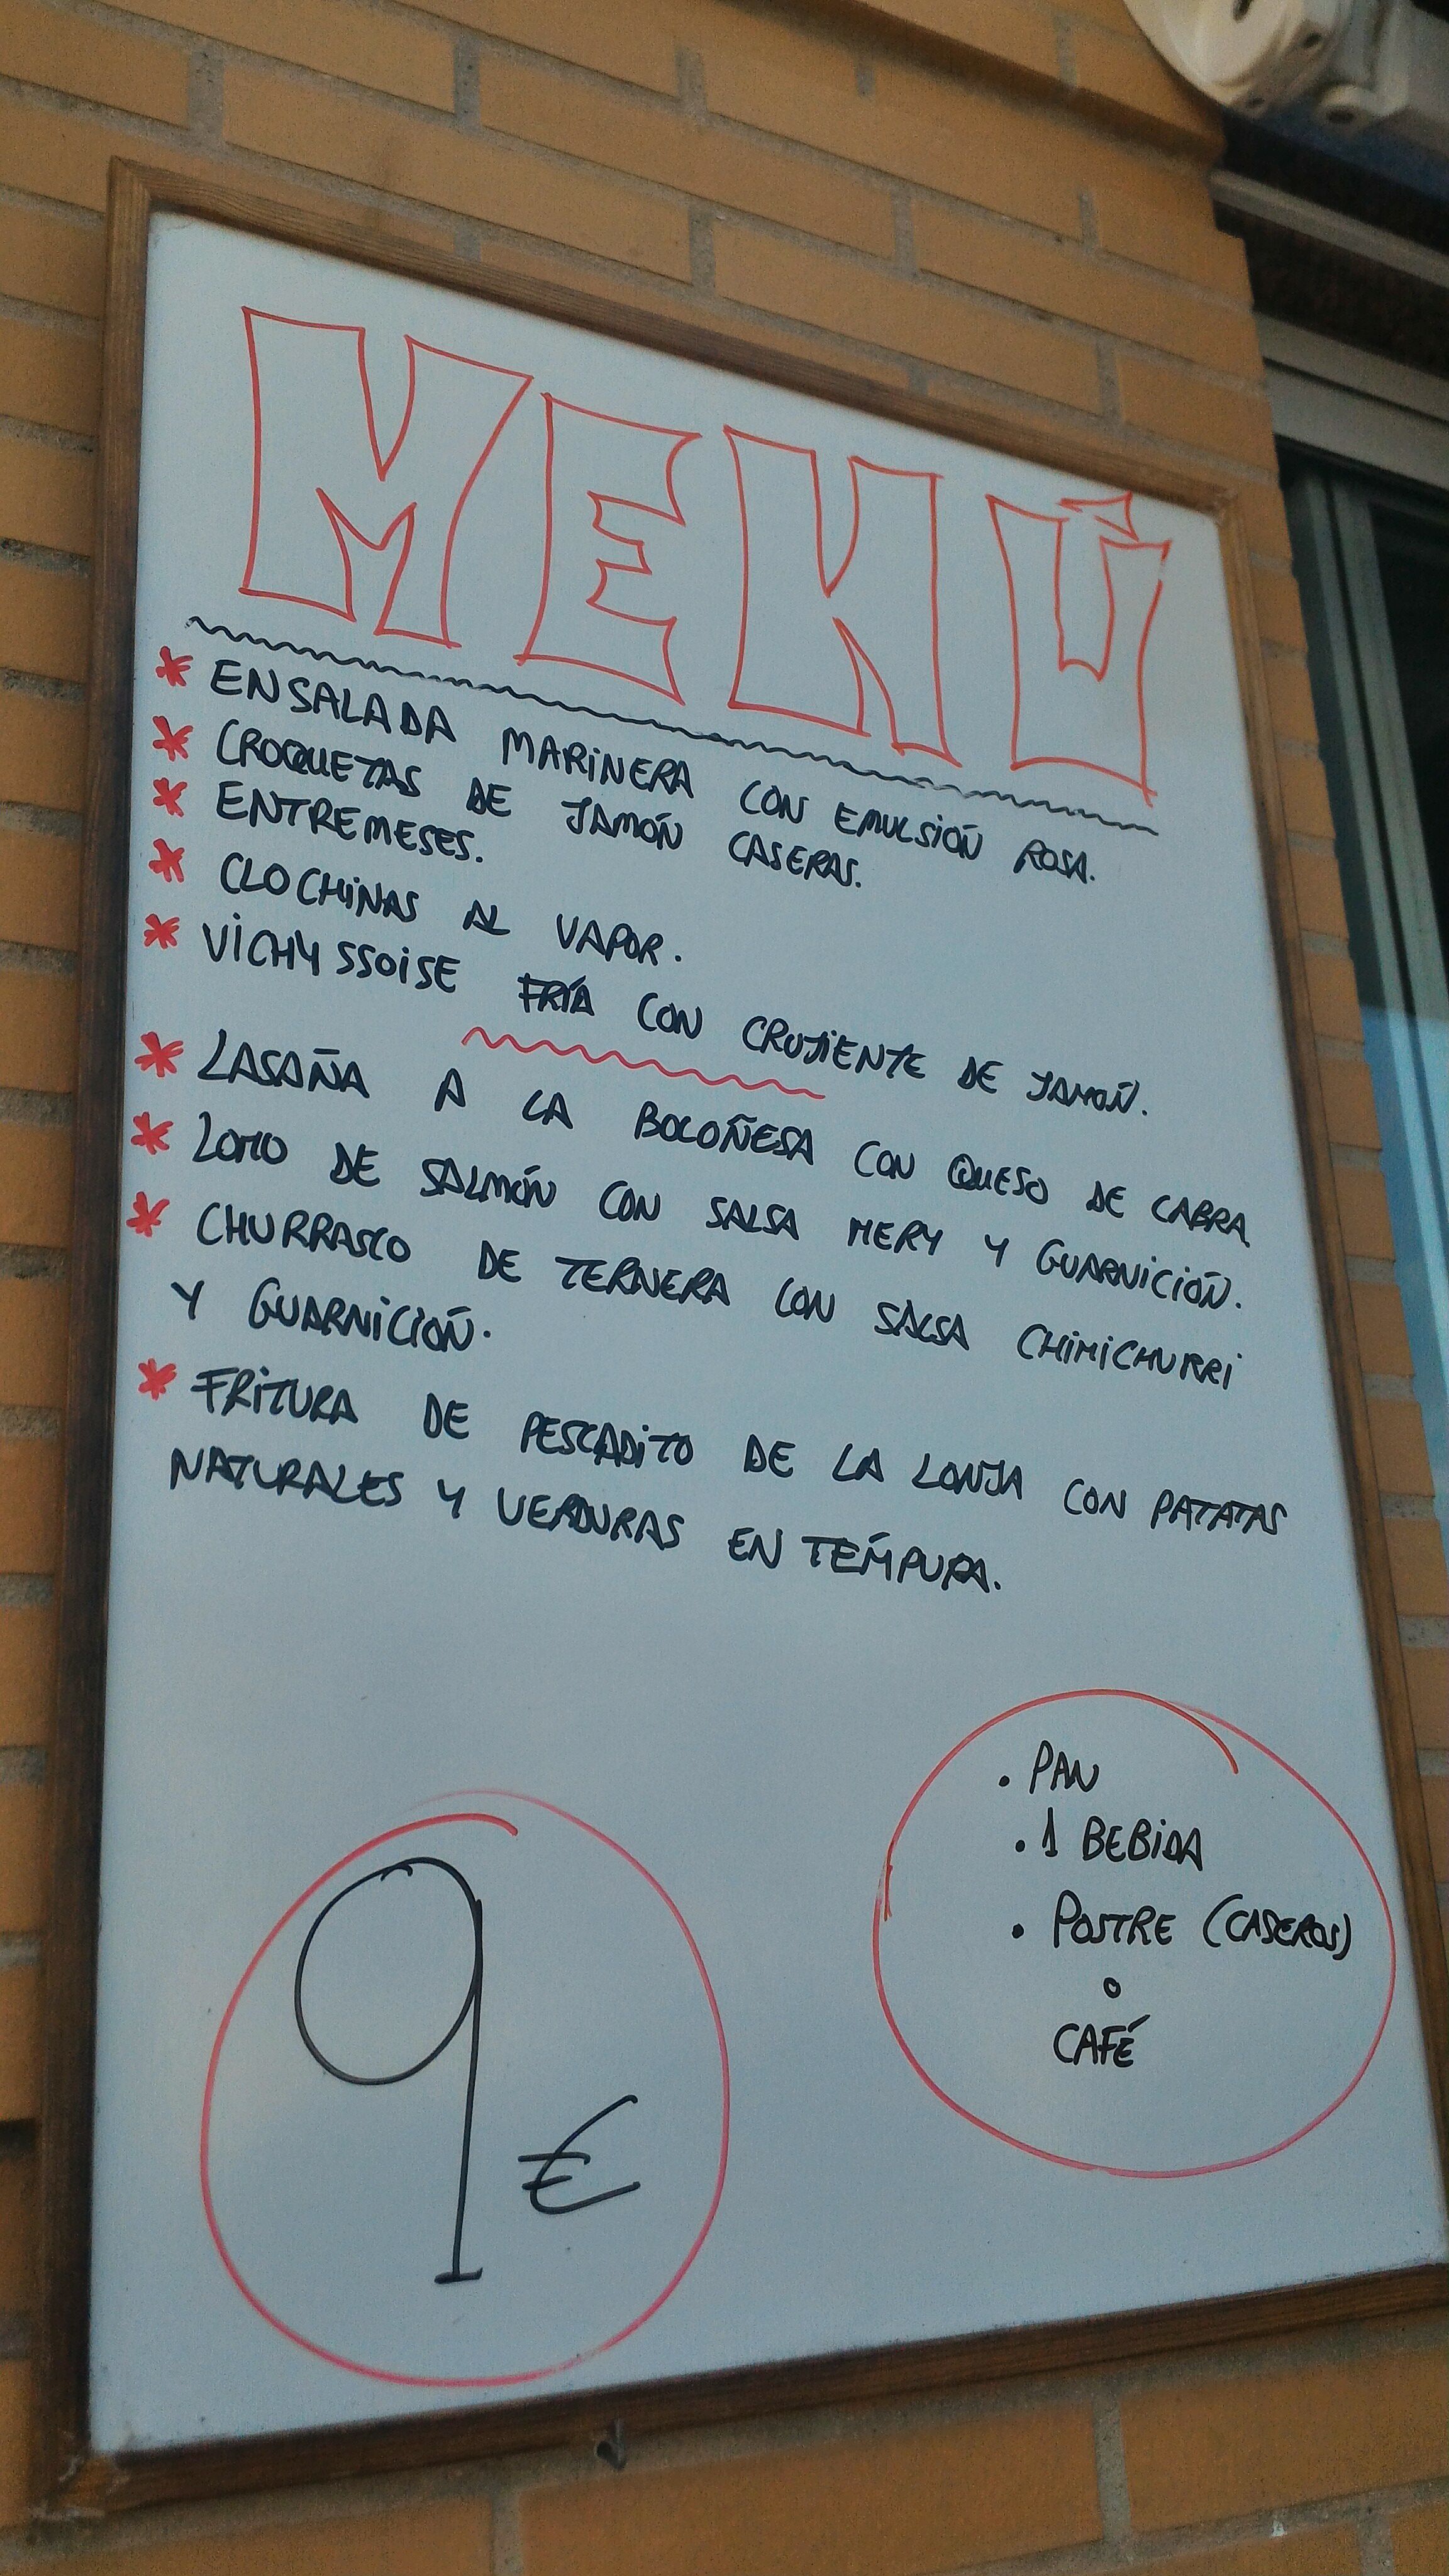 MENÚ
* ENSALADA MARINERA CON EMULSIÓN ROSA.
* CROQUETAS DE JAMÓN CASERAS.
* ENTREMESES.
* CLOCHINAS AL VAPOR.
* VICHYSSOISE FRÍA CON CRUJIENTE DE JAMÓN.
* LASAÑA A LA BOLOÑESA CON QUESO DE CABRA
* LOMO DE SALMÓN CON SALSA MERY Y GUARNICIÓN.
* CHURRASCO DE TERNERA CON SALSA CHIMICHURRI
Y GUARNICIÓN.
* FRITURA DE PESCADITO DE LA LONJA CON PATATAS
NATURALES Y VERDURAS EN TÉMPURA.
. PAN
. 1 BEBIDA
. POSTRE (CASEROS)
o
CAFÉ
9 €